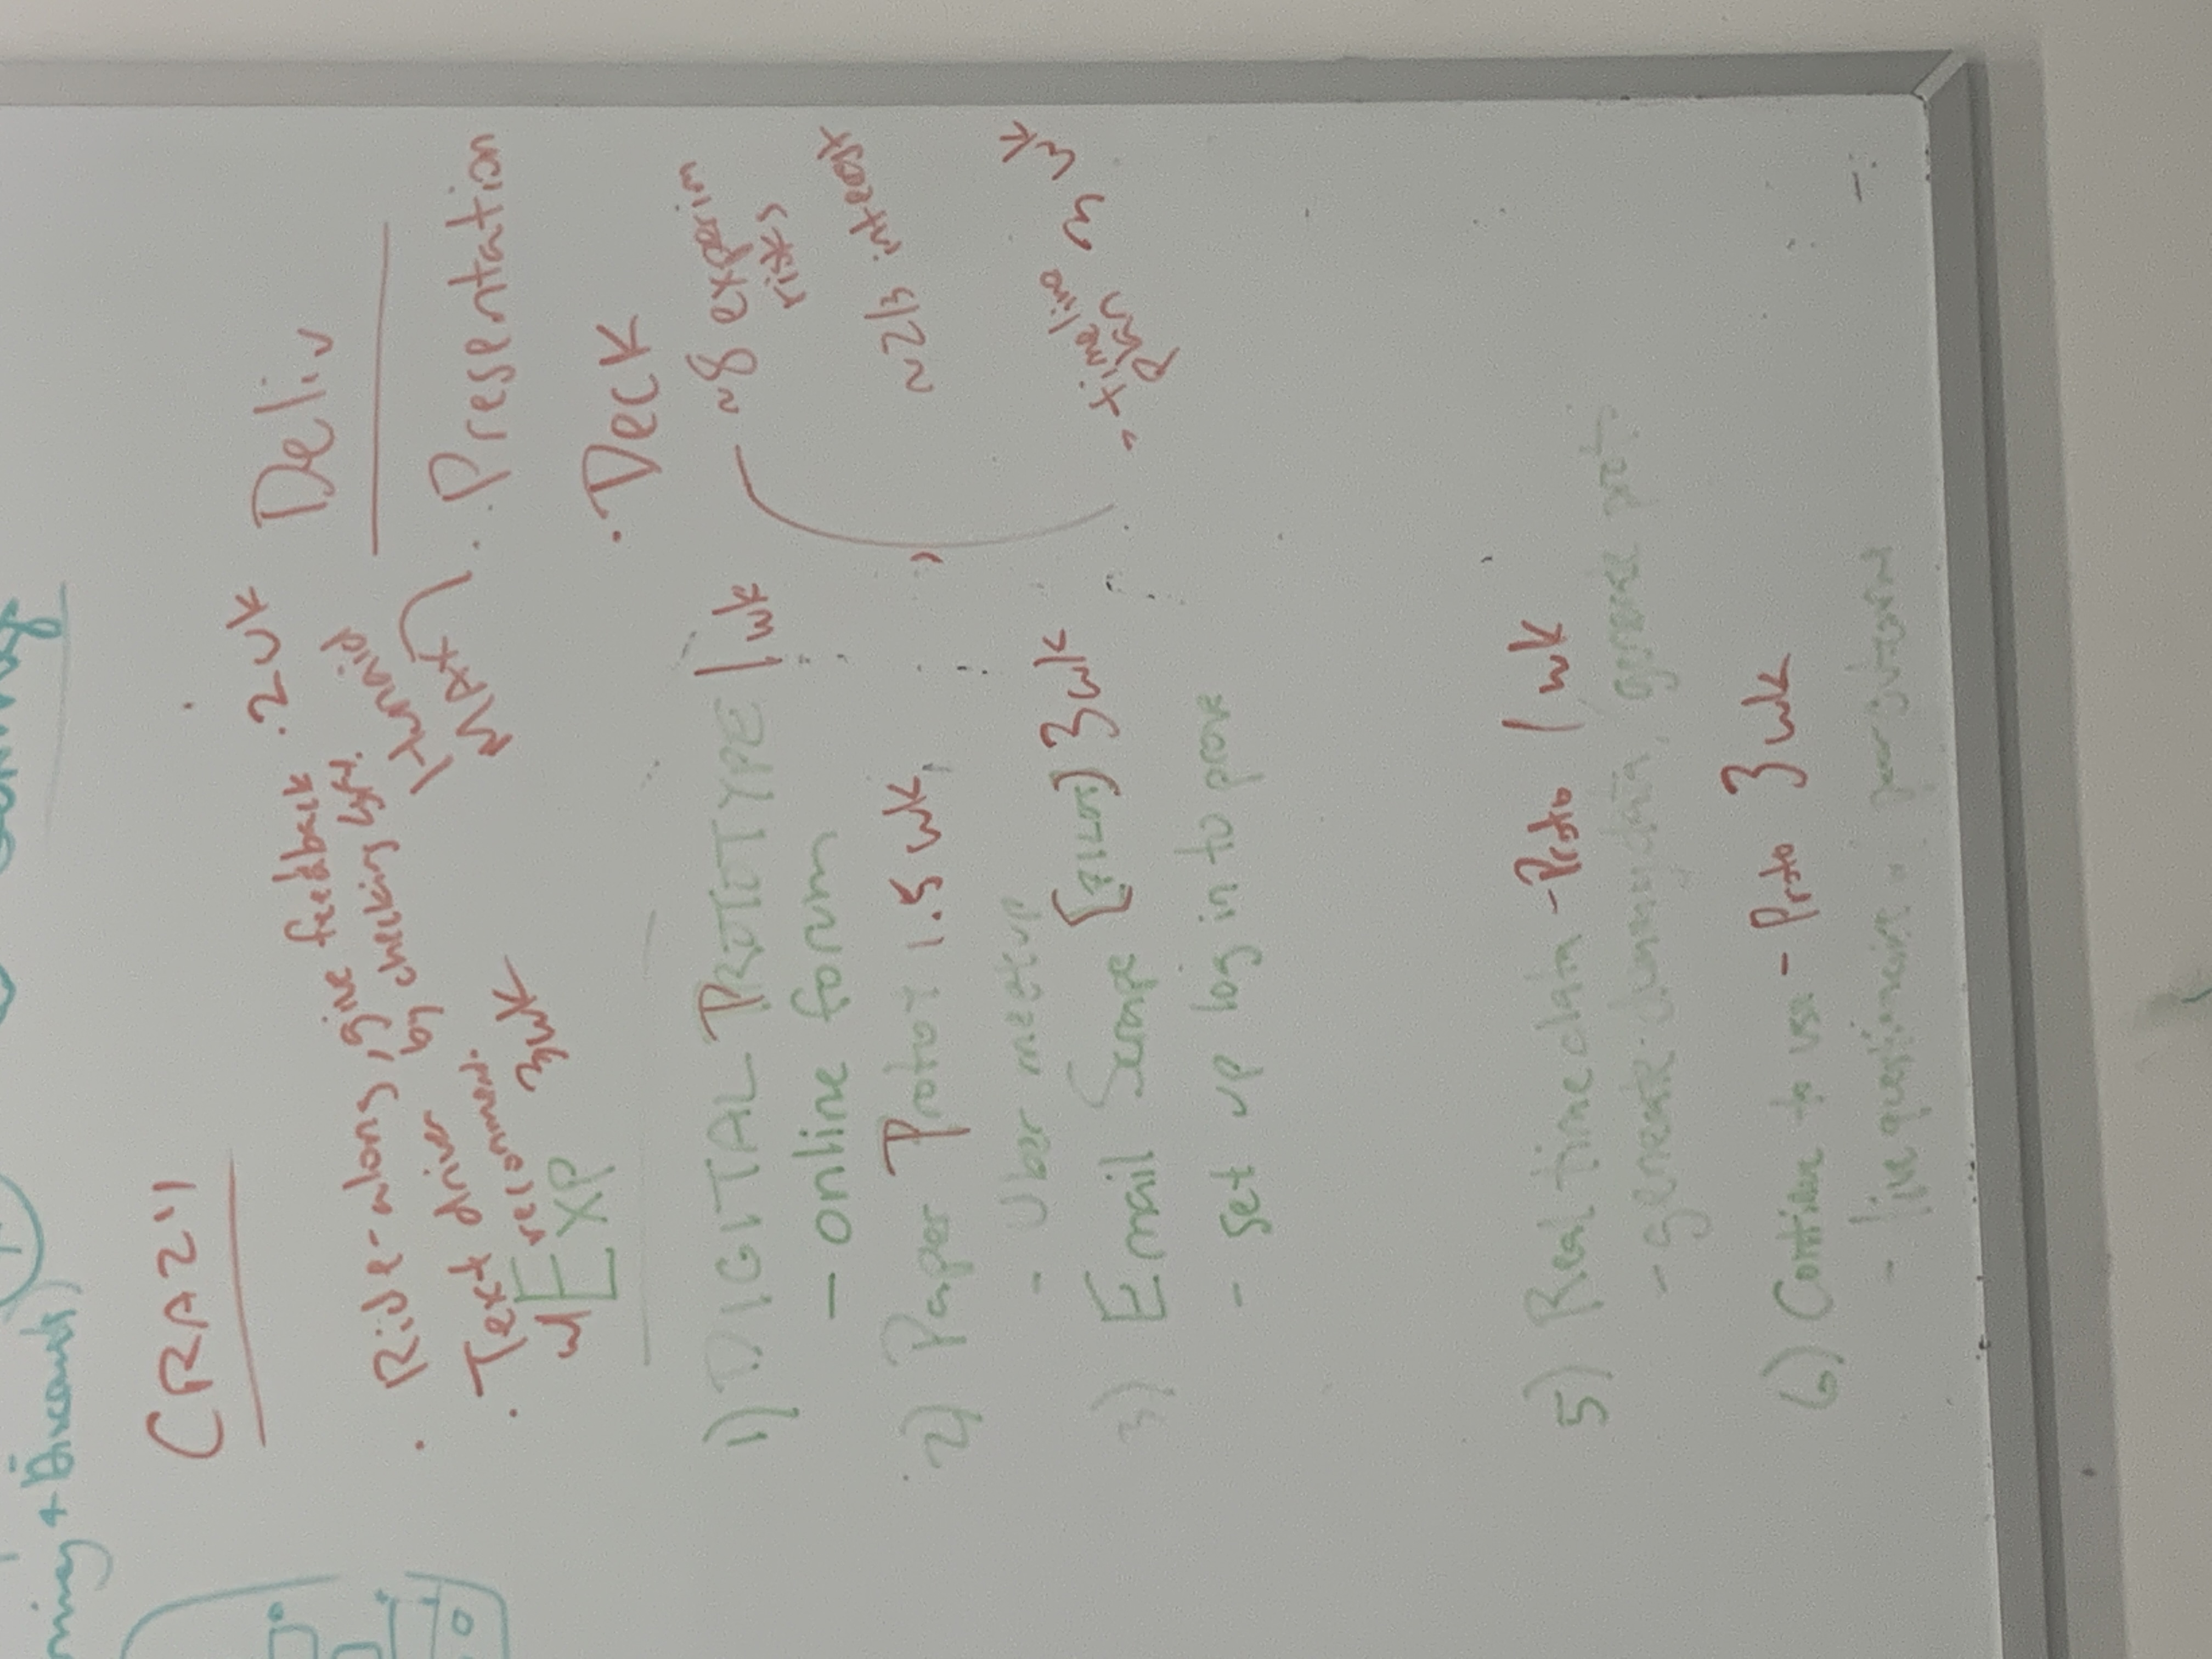 + Discounts)
CRAZY
· Ride-along, give feedback · 2 wk
by checking
· Text driver
w/ recommend. 3wk
Humaid
MAX
EXP
1) DIGITAL PROTOTYPE 1 wk
- online forum
2) Paper Protot 1.5 wk
- Uber meetup
3) Email Scrape [PILOT] 3wk
- set up log in to prove
5) Real time data - Proto 1 wk
- generate dummy data, generate
6) Continue to use - Proto 3 wk
- live
Deliv
· Presentation
· Deck
~8 experim
risks
~2/3 interest
- timeline 3 wk
plan